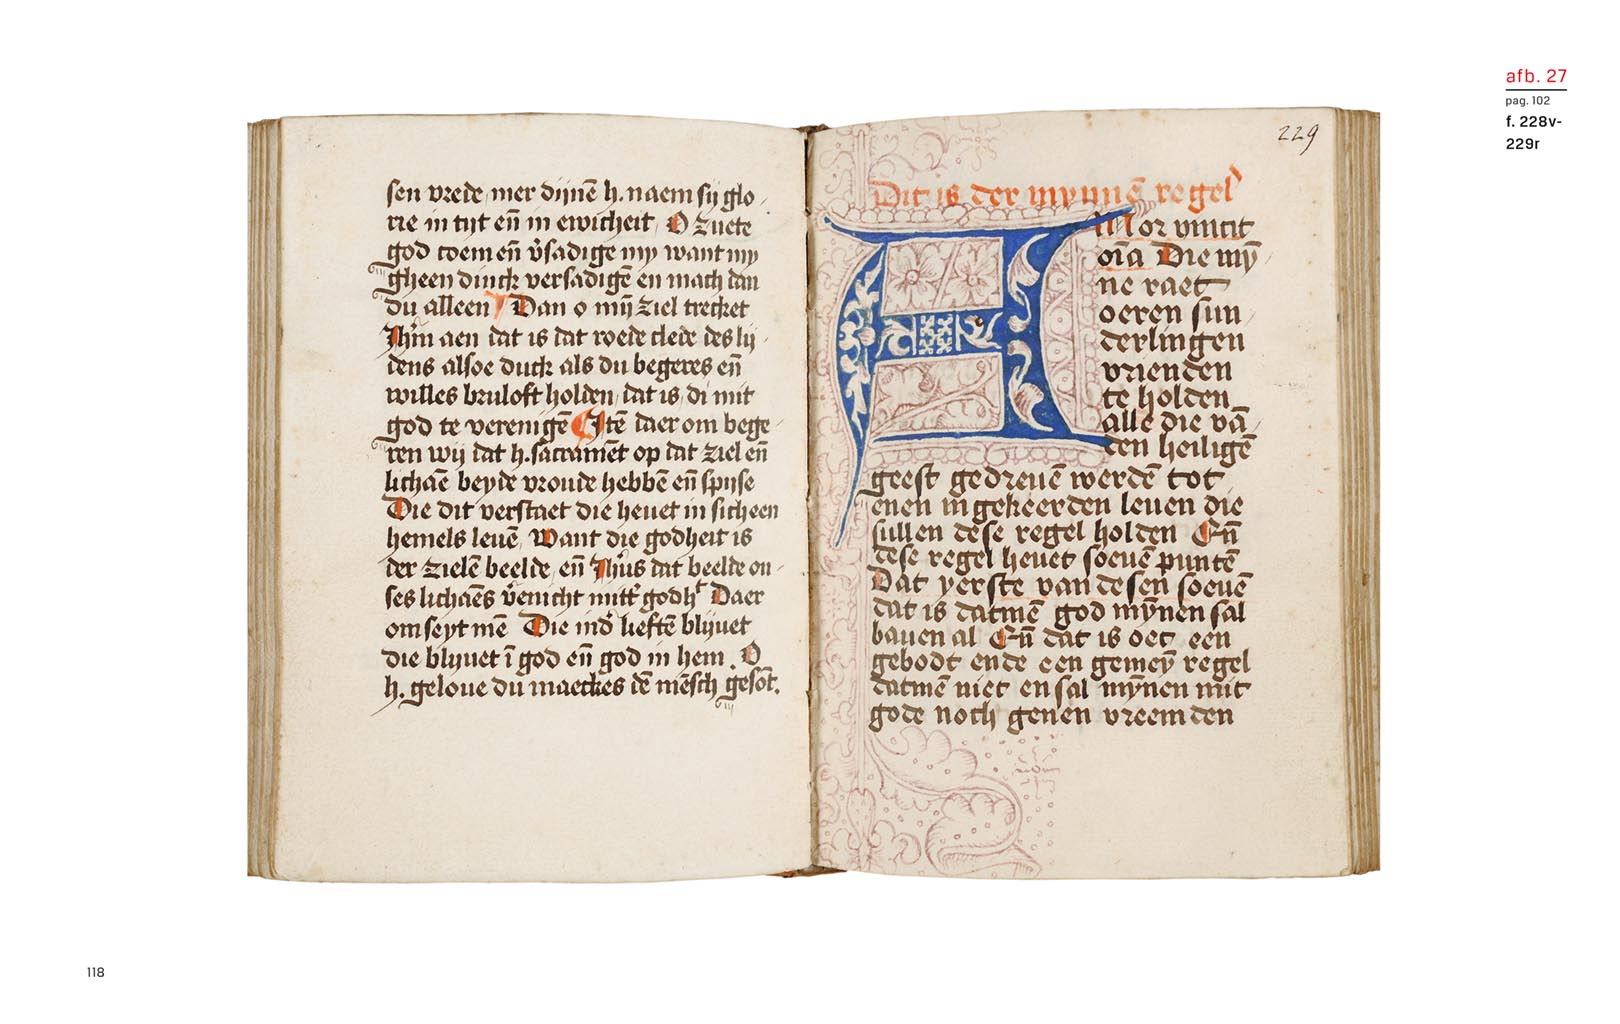 afb. 27
pag. 102
f. 228v-
229r
sen vrede, mer dijnē h. naem sij glo
rie in tijt eñ in ewicheit, O zuete
god coem eñ v̄sadige my want my
gheen dinck versadigē en mach dan
du alleen Dan o mȳ ziel trecket
Jhm̄ aen dat is dat roede clede des lij
dens alsoe duck als du begeres eñ
willes bruloft holden, dat is, di mit
god te verenigē Itē daer om bege
ren wij dat h. sacramēt op dat ziel eñ
lichāe beyde vroude hebbē eñ spijse
Die dit verstaet die hevet in sich een
hemels levē, Want die godheit is
der zielē beelde, eñ Jhūs dat beelde on
ses lichāes v̄enicht mitt' godht Daer
om seyt mē Die ind' lieftē blijuet
die blijuet ī god eñ god in hem. O
h. geloue du maeckes dē mēsch gesōt.
229
Dit is der mynnē regel
AMor vincit
oīa Die mȳ
ne raet
oeren sun
derlingen
vrienden
te holden
alle die vā
den heiligē
geest gedreuē werdē tot
enen ingekeerden leuen die
sullen dese regel holden Eñ
dese regel heuet soeuē puntē
Dat yerste van desen soeuē
dat is datmē god mȳnen sal
bauen al Eñ dat is oec een
gebodt ende een gemeȳ regel
datmē niet en sal mȳnen mit
gode noch genen vreemden
118